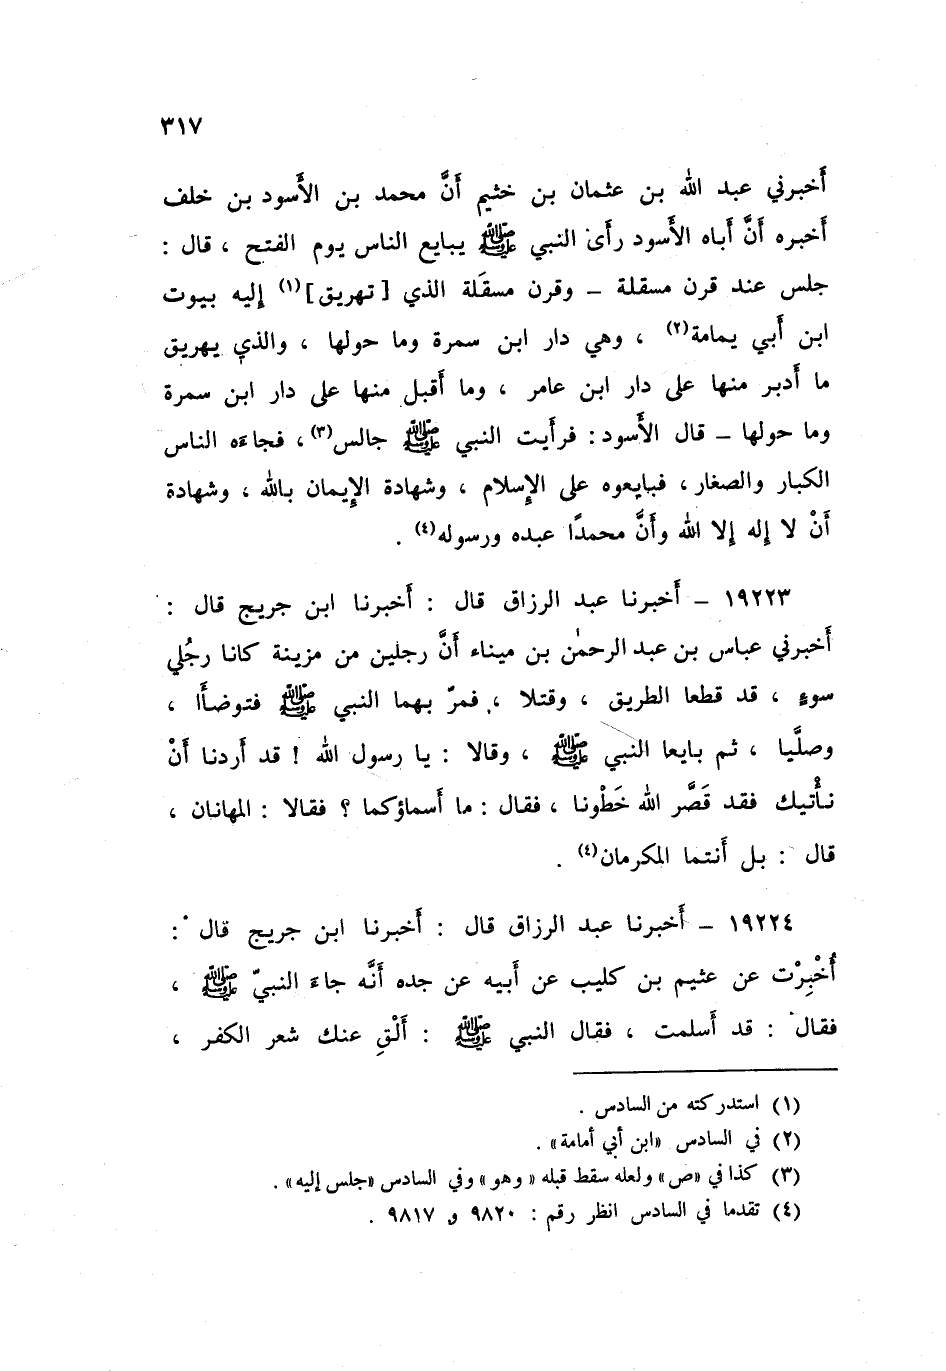 ٣١٧
أخبرني عبد الله بن عثمان بن خثيم أنَّ محمد بن الأسود بن خلف
أخبره أنَّ أباه الأسود رأى النبي ﷺ يبايع الناس يوم الفتح ، قال :
جلس عند قرن مسقلة – وقرن مسقَلة الذي [ تهريق ](١) إليه بيوت
ابن أبي يمامة(٢) ، وهي دار ابن سمرة وما حولها ، والذي يهريق
ما أدبر منها على دار ابن عامر ، وما أقبل منها على دار ابن سمرة
وما حولها – قال الأسود : فرأيت النبي ﷺ جالس(٣) ، فجاءه الناس
الكبار والصغار ، فبايعوه على الإسلام ، وشهادة الإيمان بالله ، وشهادة
أنْ لا إله إلا الله وأنَّ محمدًا عبده ورسوله(٤) .
١٩٢٢٣ – أخبرنا عبد الرزاق قال : أخبرنا ابن جريج قال :
أخبرني عباس بن عبد الرحمٰن بن ميناء أنَّ رجلين من مزينة كانا رجُلي
سوءٍ ، قد قطعا الطريق ، وقتلا ، فمرّ بهما النبي ﷺ فتوضأَا ،
وصلَّيا ، ثم بايعا النبي ﷺ ، وقالا : يا رسول الله ! قد أردنا أنْ
نأْتيك فقد قَصَّر الله خَطْونا ، فقال : ما أسماؤكما ؟ فقالا : المهانان ،
قال : بل أنتما المكرمان(٤) .
١٩٢٢٤ – أخبرنا عبد الرزاق قال : أخبرنا ابن جريج قال :
أُخْبِرْت عن عثيم بن كليب عن أبيه عن جده أنَّه جاءَ النبيّ ﷺ ،
فقال : قد أسلمت ، فقال النبي ﷺ : ألْقِ عنك شعر الكفر ،
(١) استدركته من السادس .
(٢) في السادس «ابن أبي أمامة» .
(٣) كذا في «ص» ولعله سقط قبله «وهو» وفي السادس «جلس إليه» .
(٤) تقدما في السادس انظر رقم : ٩٨٢٠ و ٩٨١٧ .